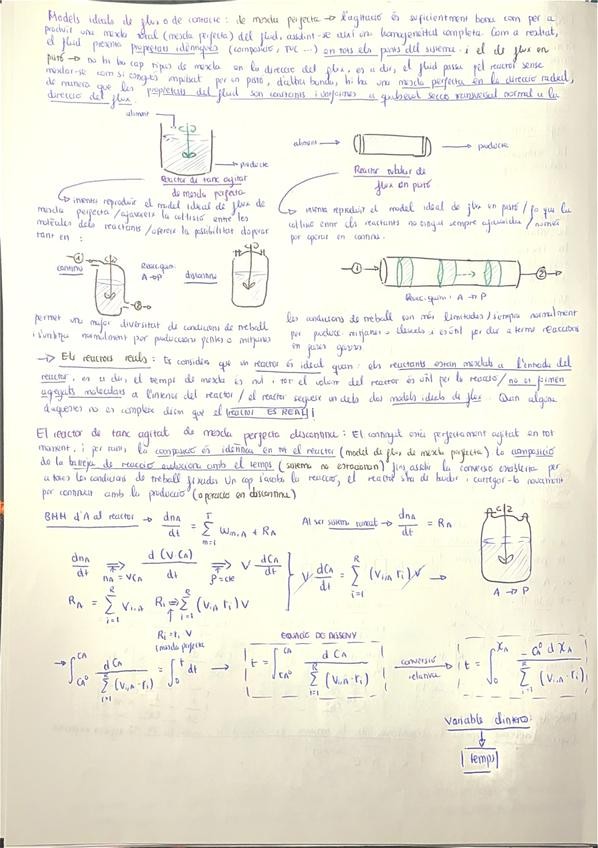 Models ideals de flux o de contacte: de mescla perfecta → l'agitació és suficientment bona com per a
produir una mescla total (mescla perfecta) del fluid, assolint-se així un homogeneïtat completa. Com a resultat,
el fluid presenta propietats idèntiques (composició, T ...) en tots els punts del sistema. i el de flux en
pistó → no hi ha cap tipus de mescla en la direcció del flux, és a dir, el fluid passa pel reactor sense
mesclar-se com si estigués impulsat per un pistó, d'altra banda, hi ha una mescla perfecta en la direcció radial,
de manera que les propietats del fluid són constants i uniformes a qualsevol secció transversal normal a la
direcció del flux.
aliment
producte
Reactor de tanc agitat
de mescla perfecta
aliment → → producte
Reactor tubular de
flux en pistó
intenta reproduir el model ideal de flux de
mescla perfecta / afavoreix la col·lisió entre les
molècules dels reactants / ofereix la possibilitat d'operar
tant en:
intenta reproduir el model ideal de flux en pistó / fa que la
col·lisió entre els reactants no sigui sempre afavorida / només
pot operar en continu.
① continu ②
Reac. quim:
A → P
discontinu
① → → ②
Reac. quim: A → P
permet una major diversitat de condicions de treball
i s'utilitza normalment per produccions petites o mitjanes
les condicions de treball són més limitades / s'empra normalment
per produc. mitjanes - elevades i és útil per dur a terme reaccions
en fases gasoses
→ Els reactors reals: Es considera que un reactor és ideal quan: els reactants estan mesclats a l'entrada del
reactor, és a dir, el temps de mescla és nul i tot el volum del reactor és útil per la reacció / no es formen
agregats moleculars a l'interior del reactor / el reactor segueix un dels dos models ideals de flux. Quan alguna
d'aquestes no es compleix diem que el reactor ES REAL!
El reactor de tanc agitat de mescla perfecta discontinu: El contingut està perfectament agitat en tot
moment, i per tant, la composició és idèntica en tot el reactor (model de flux de mescla perfecta). La composició
de la barreja de reacció evoluciona amb el temps (sistema no estacionari) fins assolir la conversió establerta per
a totes les condicions de treball fixades. Un cop s'acaba la reacció, el reactor s'ha de buidar i carregar-lo novament
per continuar amb la producció (operació en discontinu)
BMM d'A al reactor → dn_A/dt = Σ_{m=1}^{T} W_{m,A} + R_A Al ser sistema tancat → dn_A/dt = R_A
dn_A/dt ⇒ (n_A = VC_A) d(VC_A)/dt ⇒ (ρ = cte) V dC_A/dt } V dC_A/dt = Σ_{i=1}^{R} (ν_{i,A} r_i) V →
R_A = Σ_{i=1}^{R} ν_{i,A} R_i ⇒ Σ_{i=1}^{R} (ν_{i,A} r_i) V
R_i = r_i V
(mescla perfecta)
A → P
EQUACIÓ DE DISSENY
→ ∫_{C_A^0}^{C_A} dC_A / Σ_{i=1}^{R} (ν_{i,A} · r_i) = ∫_0^t dt → t = ∫_{C_A^0}^{C_A} dC_A / Σ_{i=1}^{R} (ν_{i,A} · r_i) conversió relativa → t = ∫_0^{X_A} −C_A^0 dX_A / Σ_{i=1}^{R} (ν_{i,A} · r_i)
Variable d'interès:
temps